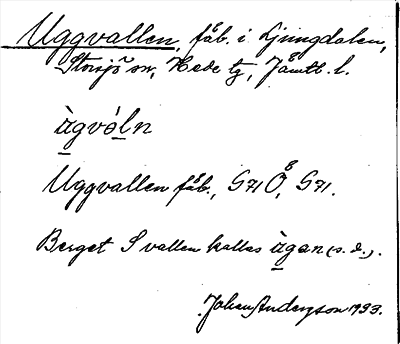 Uggvallen, fäb. i Ljungdalen,
Storsjö sn, Hede tg, Jämtl. l.
àgvóln
Uggvallen fäb., G71 Ö, G71.
Berget S vallen kallas àgan (s. d.).
Johan Anderzson 1933.